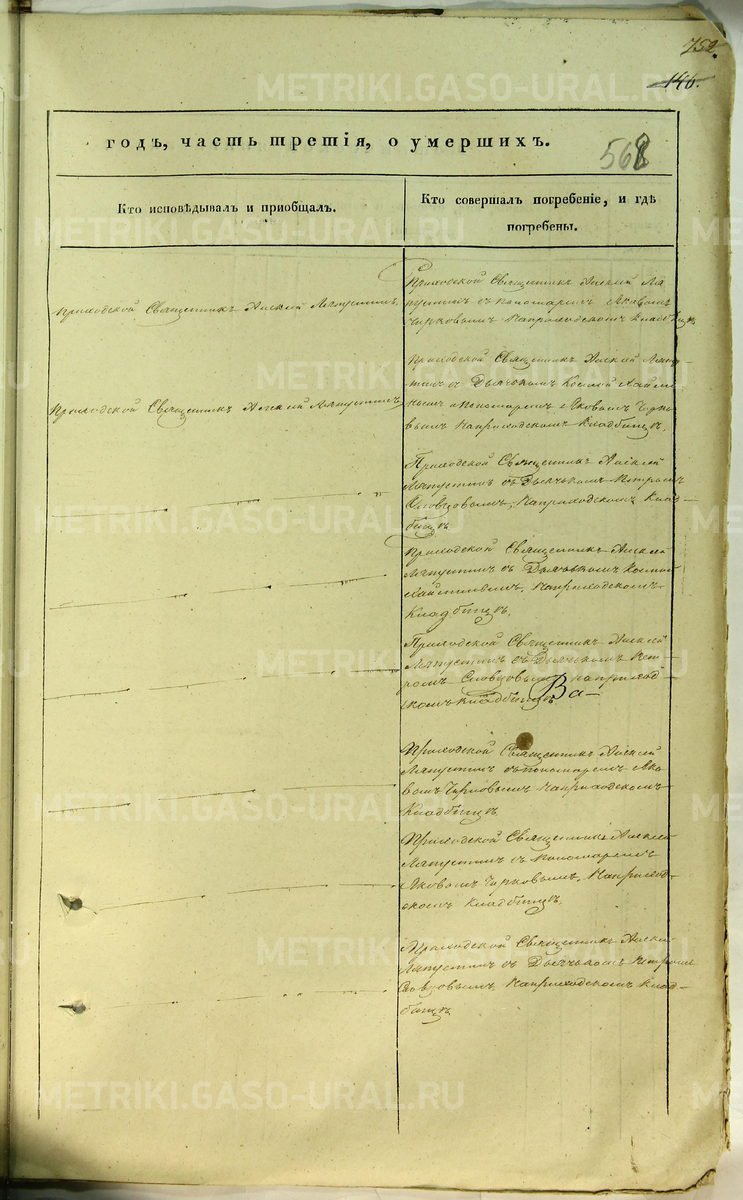 752.
146.
568
годъ, часть третія, о умершихъ.
Кто исповѣдывалъ и приобщалъ.
Кто совершалъ погребеніе, и гдѣ
погребены.
Приходской Священникъ Алексѣй Ляпустинъ
Приходской Священникъ Алексѣй Ля
пустинъ съ пономаремъ Яковомъ
Чирковымъ На приходскомъ Кладбищѣ
Приходской Священникъ Алексѣй Ляпустинъ
Приходской Священникъ Алексѣй Ляпус
тинъ съ Дьячкомъ Космой
и пономаремъ Яковомъ Чирко
вымъ На приходскомъ Кладбищѣ.
Приходской Священникъ Алексѣй
Ляпустинъ съ Дьячкомъ Петромъ
Словцовымъ, На приходскомъ Клад–
бищѣ
Приходской Священникъ Алексѣй
Ляпустинъ съ Дьячкомъ Космой
На приходскомъ
Кладбищѣ.
Приходской Священникъ Алексѣй
Ляпустинъ съ Дьячкомъ Пет
ромъ Словцовымъ на приход
скомъ кладбищѣ
Ва–
Приходской Священникъ Алексѣй
Ляпустинъ съ пономаремъ Яко
вомъ Чирковымъ На приходскомъ
Кладбищѣ
Приходской Священникъ Алексѣй
Ляпустинъ съ пономаремъ
Яковомъ Чирковымъ, На приход–
скомъ Кладбищѣ.
Приходской Священникъ Алексѣй
Ляпустинъ съ Дьячкомъ Петромъ
Словцовымъ На приходскомъ Клад–
бищѣ
METRIKI.GASO-URAL.RU
METRIKI.GASO-URAL.RU
METRIKI.GASO-URAL.RU
METRIKI.GASO-URAL.RU
METRIKI.GASO-URAL.RU
METRIKI.GASO-URAL.RU
METRIKI.GASO-URAL.RU
METRIKI.GASO-URAL.RU